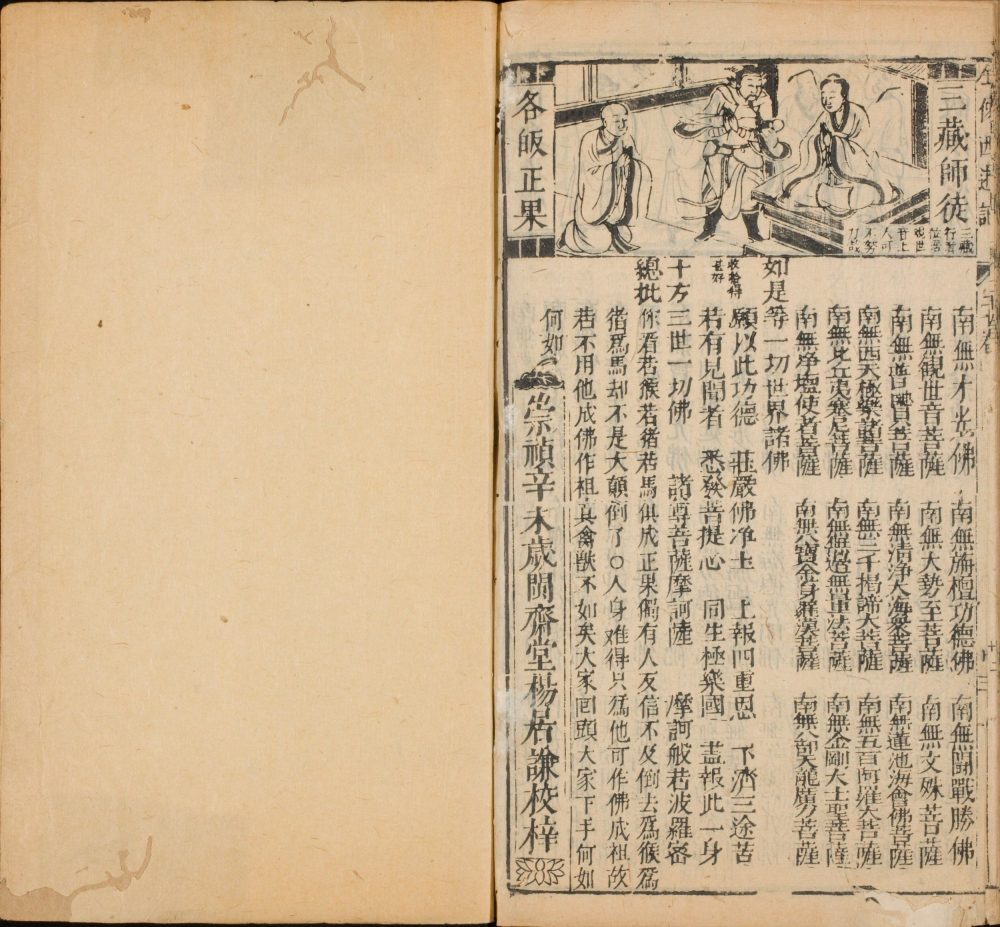 全像西遊記
三藏師徒
各皈正果
南無才光佛 南無旃檀功德佛 南無鬪戰勝佛
南無觀世音菩薩 南無大勢至菩薩 南無文殊菩薩
南無普賢菩薩 南無清淨大海衆菩薩 南無蓮池海會佛菩薩
南無西天極樂諸菩薩 南無三千揭諦大菩薩 南無五百阿羅大菩薩
南無比丘夷塞尼菩薩 南無無邊無量法菩薩 南無金剛大士聖菩薩
南無淨壇使者菩薩 南無八寶金身羅漢菩薩 南無八部天龍廣力菩薩
如是等一切世界諸佛
願以此功德 莊嚴佛淨土 上報四重恩 下濟三途苦
收拾得
甚好
若有見聞者 悉發菩提心 同生極樂國 盡報此一身
十方三世一切佛 諸尊菩薩摩訶薩 摩訶般若波羅密
總批 你看若猴若猪若馬俱成正果獨有人反信不及倒去爲猴爲
猪爲馬却不是大顛倒了○人身难得只爲他可作佛成祖故
若不用他成佛作祖真禽獸不如矣大家回頭大家下手何如
何如
崇禎辛未歲閩齋堂楊居謙校梓